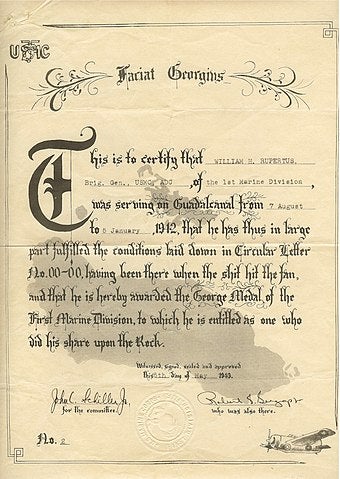 USMC
Faciat Georgius
This is to certify that WILLIAM H. RUPERTUS,
Brig. Gen., USMC, ADC, of the 1st Marine Division,
was serving on Guadalcanal from 7 August
to 5 January, 1942, that he has thus in large
part fulfilled the conditions laid down in Circular Letter
No. 00-00, having been there when the shit hit the fan,
and that he is hereby awarded the George Medal of the
First Marine Division, to which he is entitled as one who
did his share upon the Rock.
Witnessed, signed, sealed and approved
this 8th day of May 1943.
John C. Schiller Jr.
for the committee.
Robert
who was also there.
No. 2